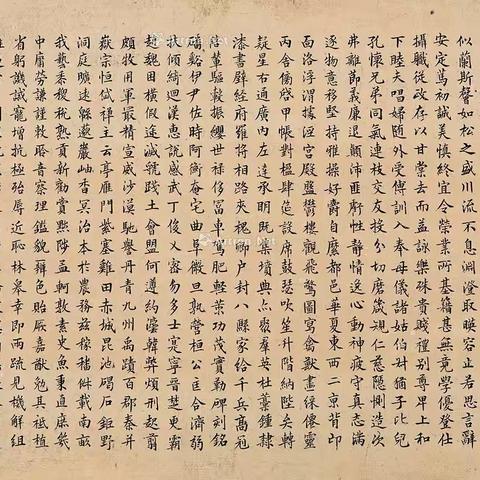 似蘭斯馨如松之盛川流不息淵澄取暎容止若思言辭
安定篤初誠美慎終宜令榮業所基籍甚無竟學優登仕
攝職從政存以甘棠去而益詠樂殊貴賤禮別尊卑上和
下睦夫唱婦隨外受傅訓入奉母儀諸姑伯叔猶子比兒
孔懷兄弟同氣連枝交友投分切磨箴規仁慈隱惻造次
弗離節義廉退顛沛匪虧性靜情逸心動神疲守真志滿
逐物意移堅持雅操好爵自縻都邑華夏東西二京背邙
面洛浮渭據涇宮殿盤鬱樓觀飛驚圖寫禽獸畫綵僊靈
丙舍傍啓甲帳對楹肆筵設席鼓瑟吹笙升階納陛弁轉
疑星右通廣內左達承明既集墳典亦聚羣英杜藁鍾隸
漆書壁經府羅將相路夾槐卿戶封八縣家給千兵高冠
陪輦驅轂振纓世祿侈富車駕肥輕策功茂實勒碑刻銘
磻谿伊尹佐時阿衡奄宅曲阜微旦孰營桓公匡合濟弱
扶傾綺迴漢惠說感武丁俊乂密勿多士寔寧晉楚更霸
趙魏困橫假途滅虢踐土會盟何遵約法韓弊煩刑起翦
頗牧用軍最精宣威沙漠馳譽丹青九州禹蹟百郡秦并
嶽宗恒岱禪主云亭雁門紫塞雞田赤城昆池碣石鉅野
洞庭曠遠緜邈巖岫杳冥治本於農務茲稼穡俶載南畝
我藝黍稷稅熟貢新勸賞黜陟孟軻敦素史魚秉直庶幾
中庸勞謙謹敕聆音察理鑑貌辯色貽厥嘉猷勉其祗植
省躬譏誡寵增抗極殆辱近恥林皋幸即兩疏見機解組